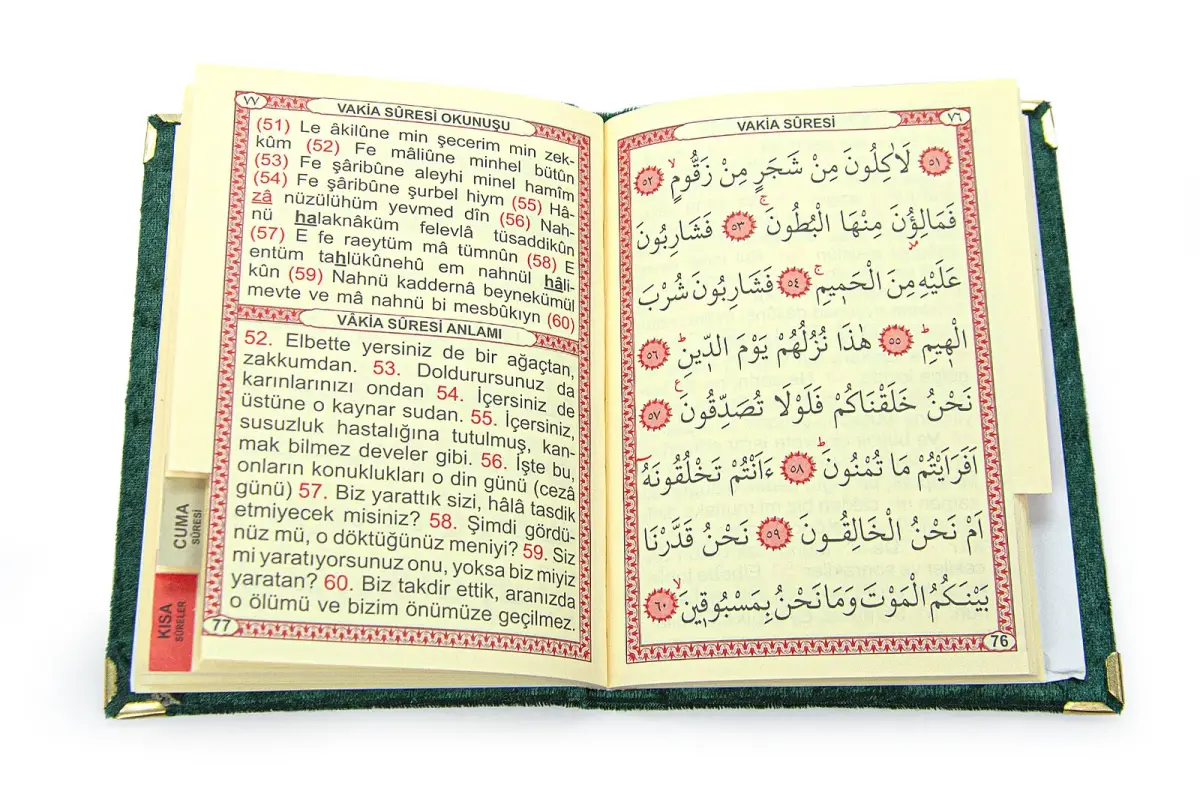 ٧٧
VAKİA SÛRESİ OKUNUŞU
(51) Le âkilûne min şecerim min zek-
kûm (52) Fe mâliûne minhel bütûn
(53) Fe şâribûne aleyhi minel hamîm
(54) Fe şâribûne şurbel hiym (55) Hâ-
zâ nüzülühüm yevmed dîn (56) Nah-
nü halaknâküm felevlâ tüsaddikûn
(57) E fe raeytüm mâ tümnûn (58) E
entüm tahlükûnehû em nahnül hâli-
kûn (59) Nahnü kaddernâ beynekümül
mevte ve mâ nahnü bi mesbûkıyn (60)
VÂKİA SÛRESİ ANLAMI
52. Elbette yersiniz de bir ağaçtan,
zakkumdan. 53. Doldurursunuz da
karınlarınızı ondan 54. İçersiniz de
üstüne o kaynar sudan. 55. İçersiniz,
susuzluk hastalığına tutulmuş, kan-
mak bilmez develer gibi. 56. İşte bu,
onların konuklukları o din günü (cezâ
günü) 57. Biz yarattık sizi, hâlâ tasdik
etmiyecek misiniz? 58. Şimdi gördü-
nüz mü, o döktüğünüz meniyi? 59. Siz
mi yaratıyorsunuz onu, yoksa biz miyiz
yaratan? 60. Biz takdir ettik, aranızda
o ölümü ve bizim önümüze geçilmez.
77
CUMA
SÛRESİ
KISA
SÛRELER
٧٦
VAKİA SÛRESİ
٥١ لَاٰكِلُونَ مِنْ شَجَرٍ مِنْ زَقُّومٍۙ ٥٢
فَمَالِؤُ۫نَ مِنْهَا الْبُطُونَۚ ٥٣ فَشَارِبُونَ
عَلَيْهِ مِنَ الْحَم۪يمِۚ ٥٤ فَشَارِبُونَ شُرْبَ
الْه۪يمِۜ ٥٥ هٰذَا نُزُلُهُمْ يَوْمَ الدّ۪ينِۜ ٥٦
نَحْنُ خَلَقْنَاكُمْ فَلَوْلَا تُصَدِّقُونَ ٥٧
اَفَرَاَيْتُمْ مَا تُمْنُونَۜ ٥٨ ءَاَنْتُمْ تَخْلُقُونَهُٓ
اَمْ نَحْنُ الْخَالِقُونَ ٥٩ نَحْنُ قَدَّرْنَا
بَيْنَكُمُ الْمَوْتَ وَمَا نَحْنُ بِمَسْبُوق۪ينَۙ ٦٠
76